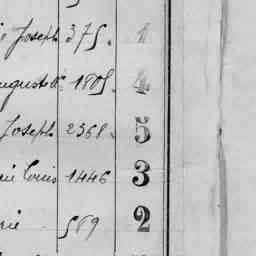 Joseph 375. 1
Auguste 1805. 4
Joseph 2368. 5
Louis 1446 3
rie 589 2